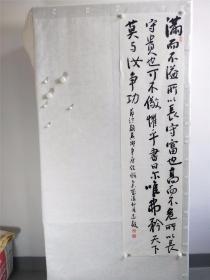 滿而不溢所以長守富也高而不危所以長
守貴也可不儆懼乎書曰尔唯弗矜天下
莫与汝争功